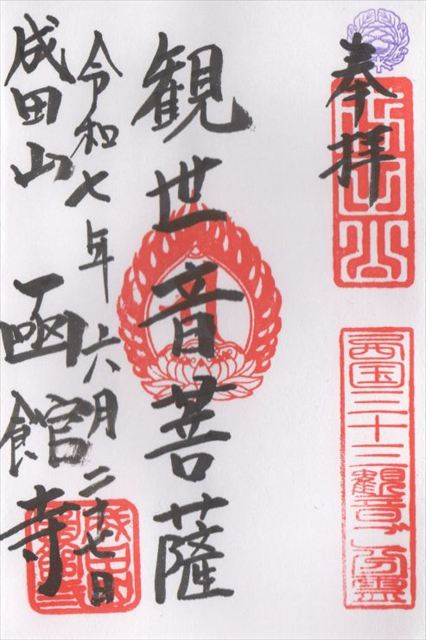 奉拝
西国三十三観音ご分霊
観世音菩薩
令和七年六月二十七日
成田山 函館寺